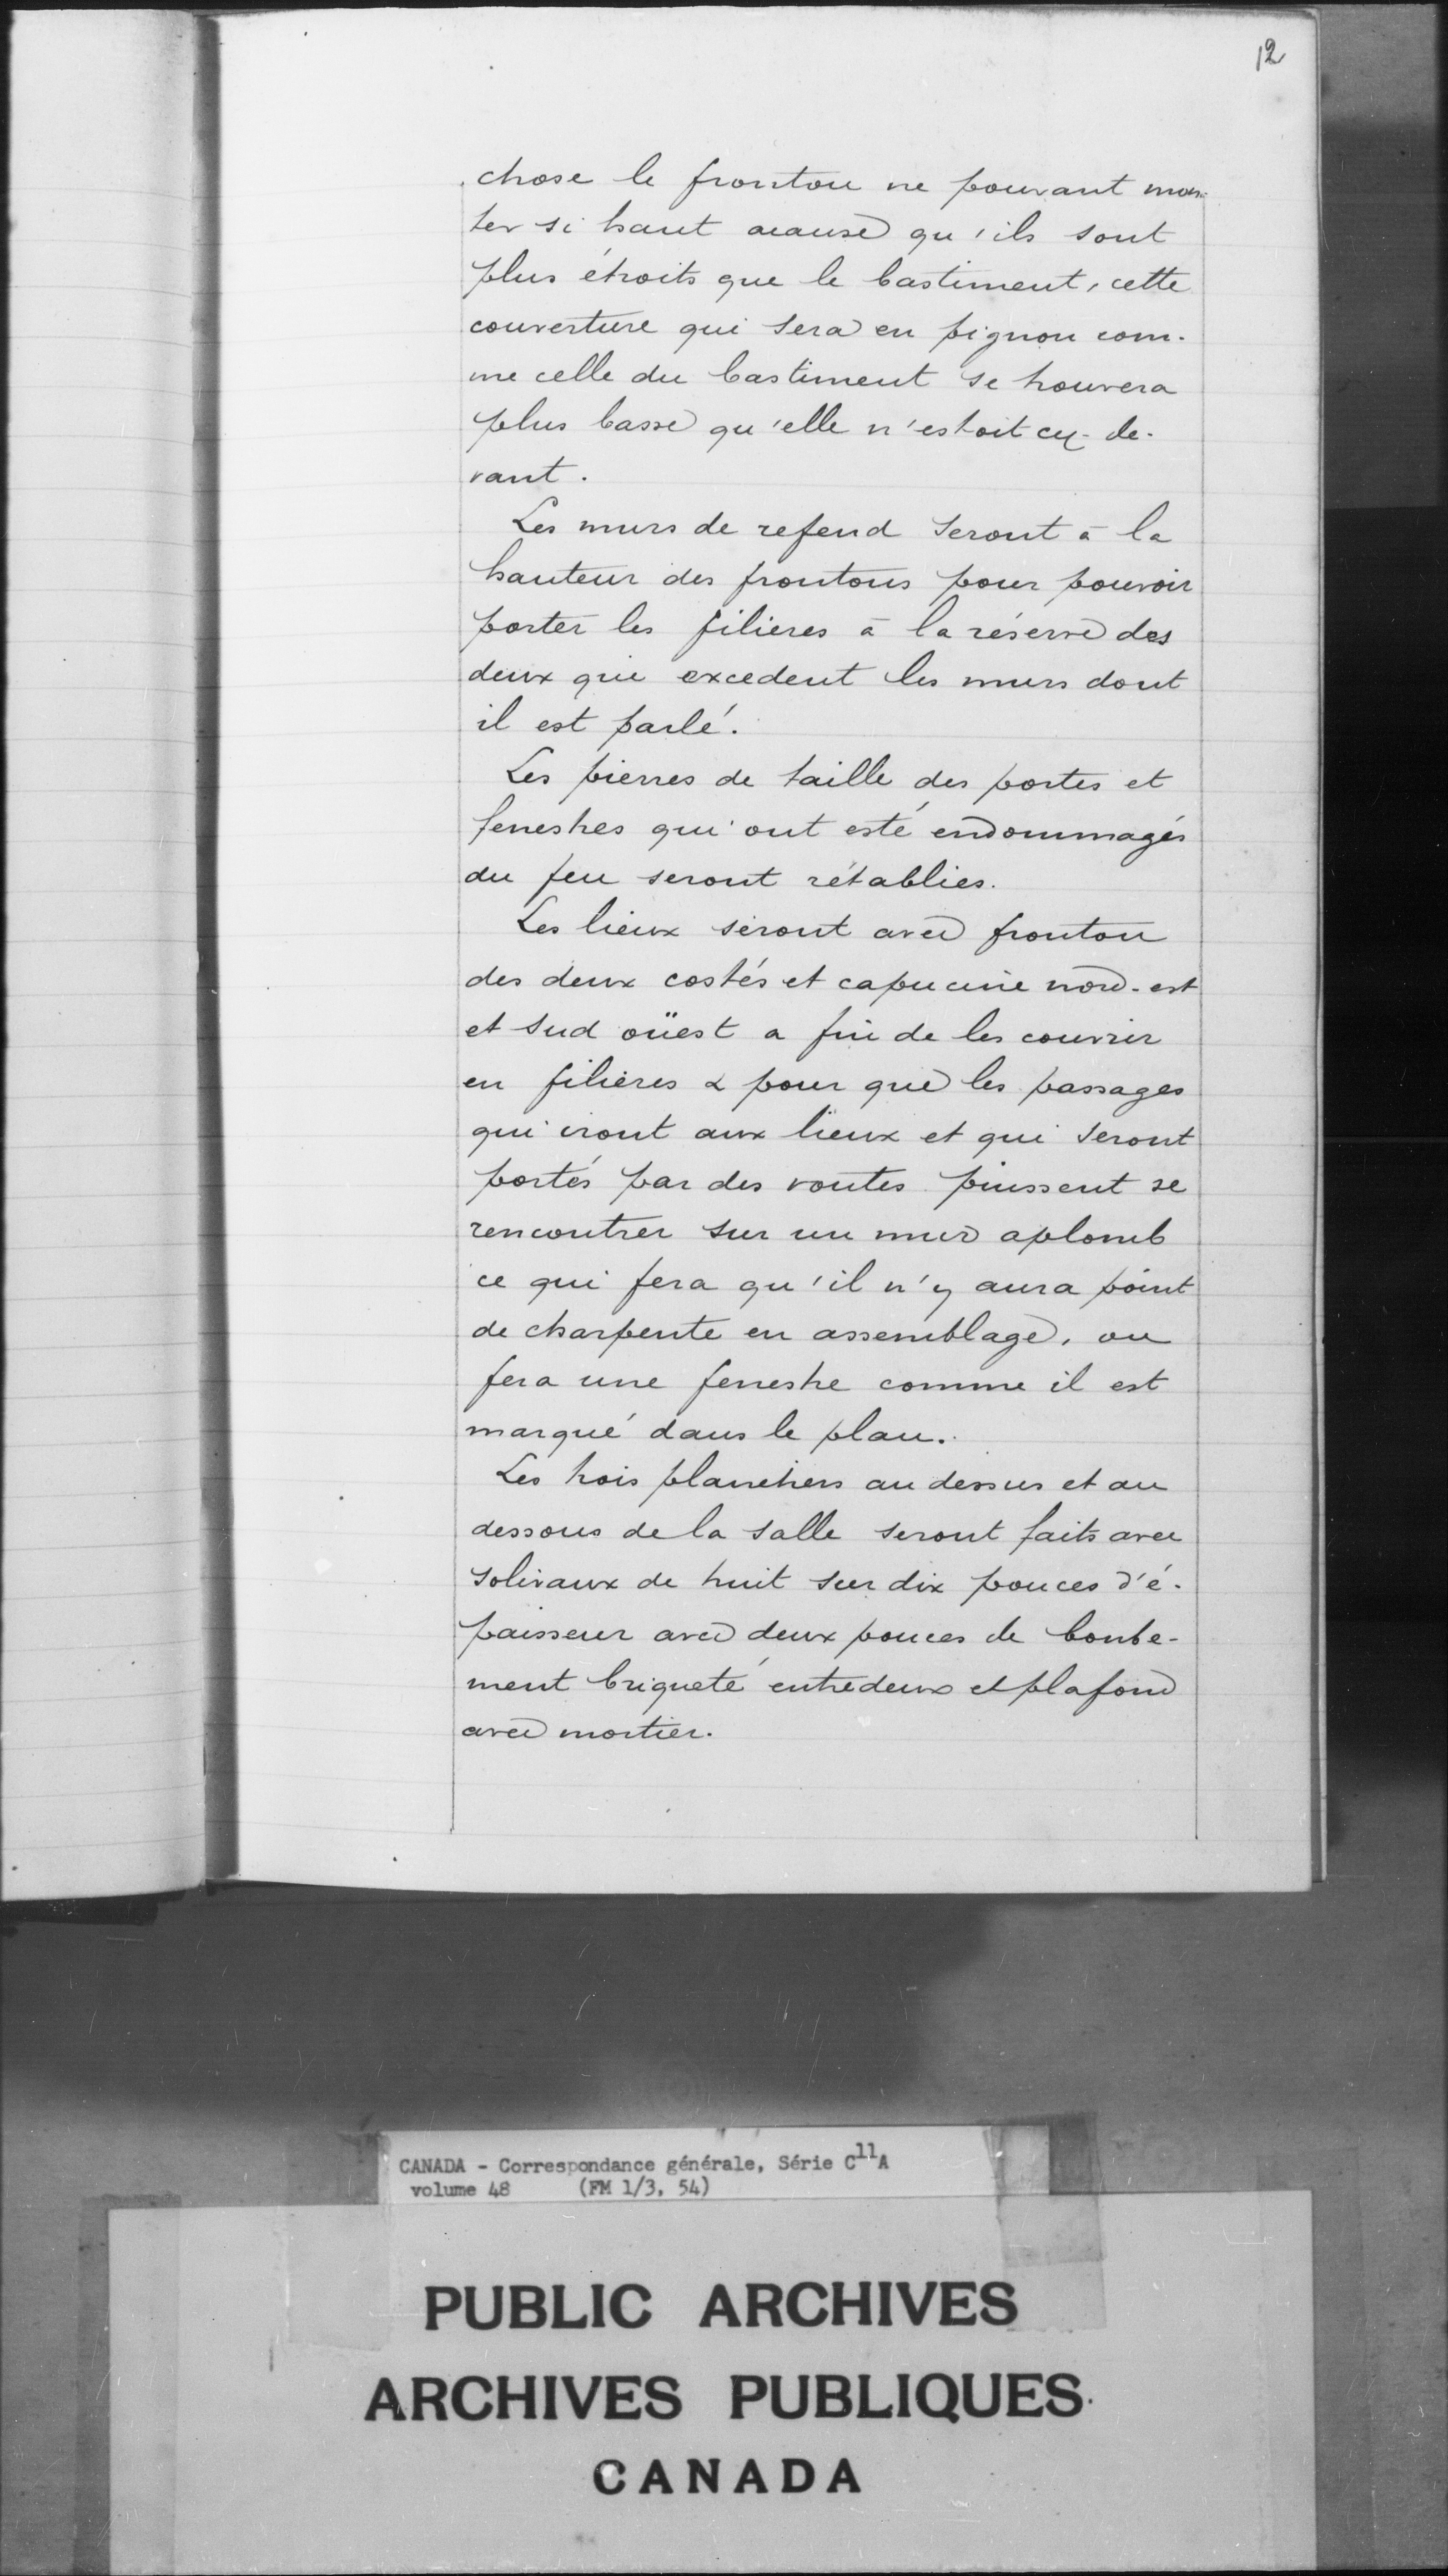 12
chose le fronton ne pouvant mon-
ter si haut acause qu'ils sont
plus étroits que le bastiment, cette
couverture qui sera en pignon com-
me celle du bastiment se trouvera
plus basse qu'elle n'estoit cy-de-
vant.
Les murs de refend seront à la
hauteur des frontons pour pouvoir
porter les filières à la réserve des
deux qui excedent les murs dont
il est parlé.
Les pierres de taille des portes et
fenestres qui ont esté endommagés
du feu seront rétablies.
Les lieux seront avec fronton
des deux costés et capucine nord-est
et sud oüest a fin de les couvrir
en filières & pour que les passages
qui iront aux lieux et qui seront
portés par des voutes puissent se
rencontrer sur un mur aplomb
ce qui fera qu'il n'y aura point
de charpente en assemblage, on
fera une fenestre comme il est
marqué dans le plan.
Les trois planchers au dessus et au
dessous de la salle seront faits avec
solivaux de huit sur dix pouces d'é-
paisseur avec deux pouces de bombe-
ment briqueté entredeux et plafond
avec mortier.
CANADA - Correspondance générale, Série C11A
volume 48 (FM 1/3, 54)
PUBLIC ARCHIVES
ARCHIVES PUBLIQUES
CANADA